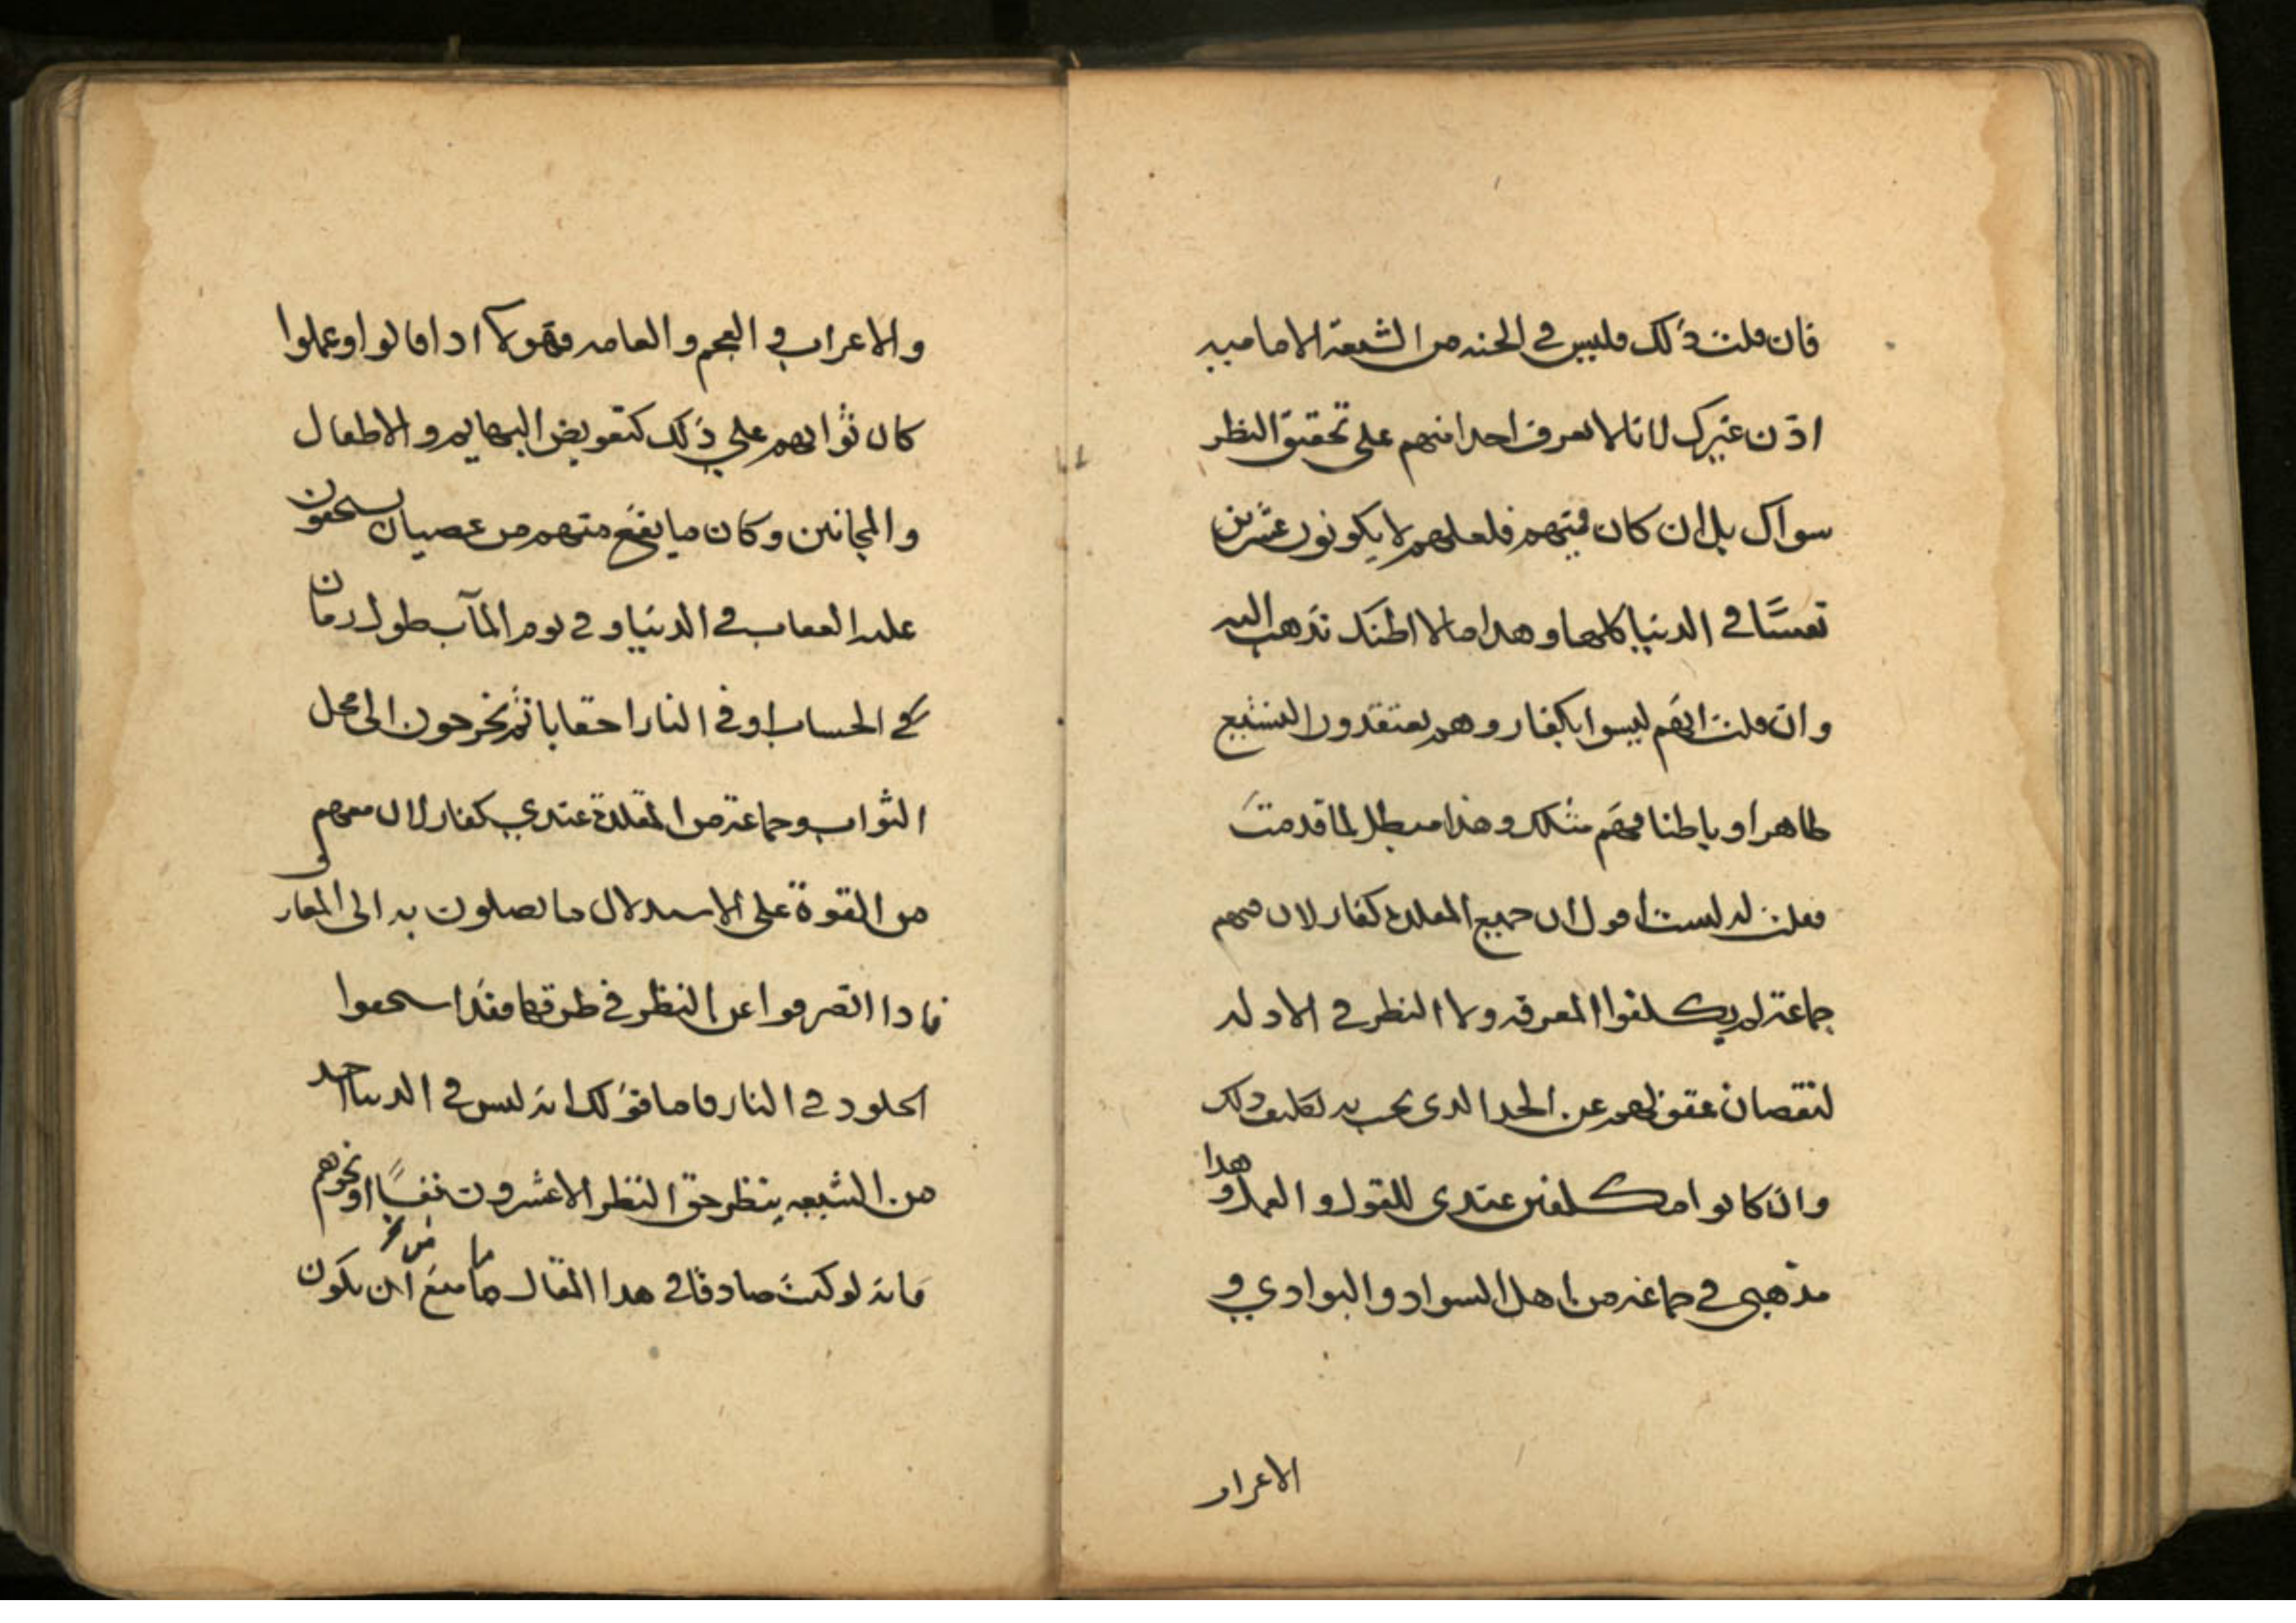 فان قلت ذلك فليس في الجنه من الشيعة الاماميه
اذن غيرك لانا لا نعرف احدا منهم على تحقيق النظر
سواك بل ان كان فيهم فلعلهم لا يكونون عشرين
نفسًا في الدنيا كلها وهدا ما لا اظنك تذهب اليه
وان قلت انهم ليسوا بكفار وهم يعتقدون التشيع
ظاهرا وباطنا فهم مثلك وهذا مبطل لما قدمت
فقلت له لست اقول ان جميع المقلدة كفار لان فيهم
جماعة لم يكلفوا المعرفه ولا النظر في الادله
لنقصان عقولهم عن الحد الدي يجب به تكليف ذلك
وان كانوا مكلفين عندي للقول والعمل وهدا
مذهبي في جماعة من اهل السواد والبوادي و
الاعراب
والاعراب في العجم والعامه فهولآ ادا قالوا وعملوا
كان ثوابهم علي ذلك كتعويض البهايم والاطفال
والمجانين وكان ما يقع منهم من عصيان يستحقون
عليه العقاب في الدنيا وفي يوم المآب طول زمان
في الحساب او في النار احقابا ثم يخرجون الى محل
الثواب وجماعة من المقلدة عندي كفار لان معهم
من القوة على الاستدلال ما يصلون به الى المعارف
فادا انصرفوا عن النظر في طرقها فقد استحقوا
الخلود في النار فاما قولك انه ليس في الدنيا احد
من الشيعه ينظر حق النظر الا عشرون نفسًا او نحوهم
فانه لو كنت صادقا في هدا المقال ما منع ان يكون